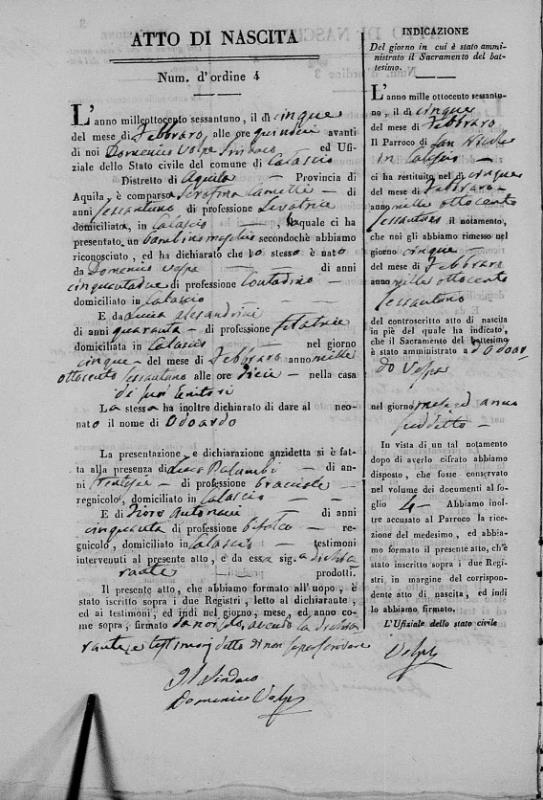 ATTO DI NASCITA
Num. d'ordine 4
L'anno millottocento sessantuno, il dì cinque
del mese di Febbraro, alle ore quindici avanti
di noi Domenico Volpe Sindaco ed Ufi-
ziale dello Stato civile del comune di Calascio
Distretto di Aquila — Provincia di
Aquila, è comparsa Serafina — di
anni sessantuno di professione Levatrice
domiciliata, in Calascio — , laquale ci ha
presentato un bambino maschio secondochè abbiamo
riconosciuto, ed ha dichiarato che lo stesso è nato
da Domenico Volpe — di anni
cinquantadue di professione Contadino —
domiciliato in Calascio —
E da Lucia Alesandrini
di anni quaranta — di professione filatrice
domiciliata in Calascio — nel giorno
cinque — del mese di Febbraro anno mille
ottocento sessantuno alle ore Dieci — nella casa
di suoi Genitori
La stessa ha inoltre dichiarato di dare al neo-
nato il nome di Odoardo
La presentazione e dichiarazione anzidetta si è fat-
ta alla presenza di Palumbi — di an-
ni — di professione bracciale —
regnicolo, domiciliato in Calascio —
E di Fiore — di anni
cinquanta di professione — re-
gnicolo, domiciliato in Calascio — testimoni
intervenuti al presente atto, e da essa sig.a dichia-
rante prodotti.
Il presente atto, che abbiamo formato all'uopo, è
stato iscritto sopra i due Registri, letto al dichiarante,
ed ai testimoni, ed indi nel giorno, mese, ed anno co-
me sopra, firmato da noi, avendo la dichia
rante, e testimoni detto di non saper scrivere
Il Sindaco
Domenico Volpe
INDICAZIONE
Del giorno in cui è stato ammi-
nistrato il Sacramento del bat-
tesimo.
L'anno mille ottocento sessantu-
no, il dì cinque
del mese di Febbraro
Il Parroco di San Nicola
in Calascio —
ci ha restituito nel dì cinque
del mese di Febbraro —
anno mille ottocento
sessantuno il notamento,
che noi gli abbiamo rimesso nel
giorno cinque —
del mese di Febbraro
anno mille ottocento
sessantuno
del controscritto atto di nascita
in piè del quale ha indicato,
che il Sacramento del battesimo
è stato amministrato a Odoar
do Volpe
nel giorno mese ed anno
suddetto —
In vista di un tal notamento
dopo di averlo cifrato abbiamo
disposto, che fosse conservato
nel volume dei documenti al fo-
glio 4 — Abbiamo inol-
tre accusato al Parroco la rice-
zione del medesimo, ed abbia-
mo formato il presente atto, ch'è
stato inscritto sopra i due Regi-
stri, in margine del corrispon-
dente atto di nascita, ed indi
lo abbiamo firmato.
L'Ufiziale dello stato civile
Volpe